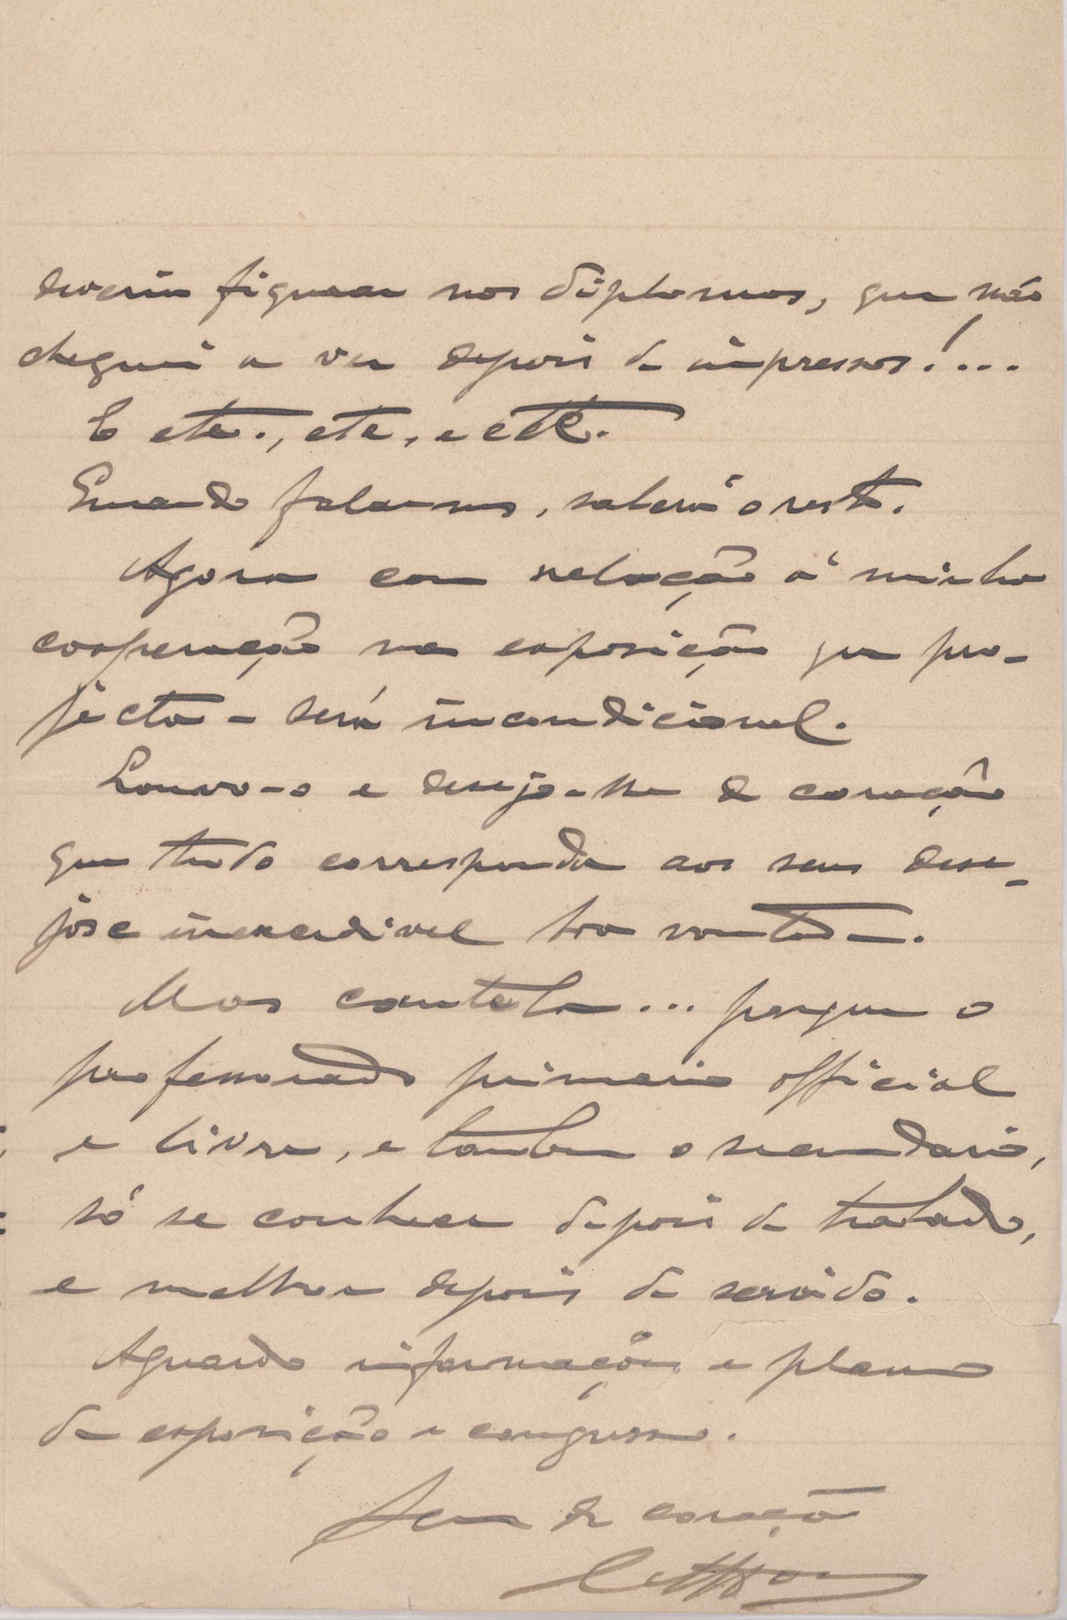 deveriam figurar nos diplomas, que não
cheguei a ver depois de impressos!...
E etc., etc., e etc.
Quando falarmos, saberá o resto.
Agora com relação á minha
cooperação na exposição que pro-
jecta - será incondicional.
Louvo-o e desejo-lhe de coração
que tudo corresponda aos seus dese-
jos e inexcedivel boa vontade.
Mas cautela... porque o
professorado primario official
e livre, e tambem o secundario,
só se conhece depois de tratado,
e melhor depois de servido.
Aguardo informações e plano
da exposição e congresso.
Seu de coração